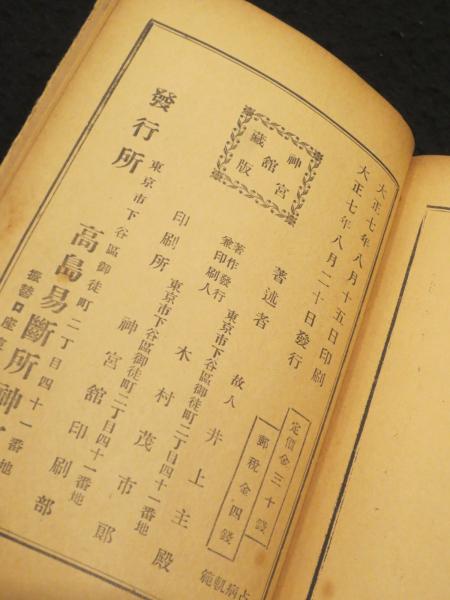 大正七年八月十五日印刷
大正七年八月二十日發行
定價金三十錢
郵稅金四錢
神宮
舘
藏版
著述者 故人 井上主殿
著作發行
兼印刷人
東京市下谷區御徒町二丁目四十一番地
木村茂市郎
印刷所 東京市下谷區御徒町二丁目四十一番地
神宮舘印刷部
發行所 東京市下谷區御徒町二丁目四十一番地
高島易斷所神
振替口座
占病軌範